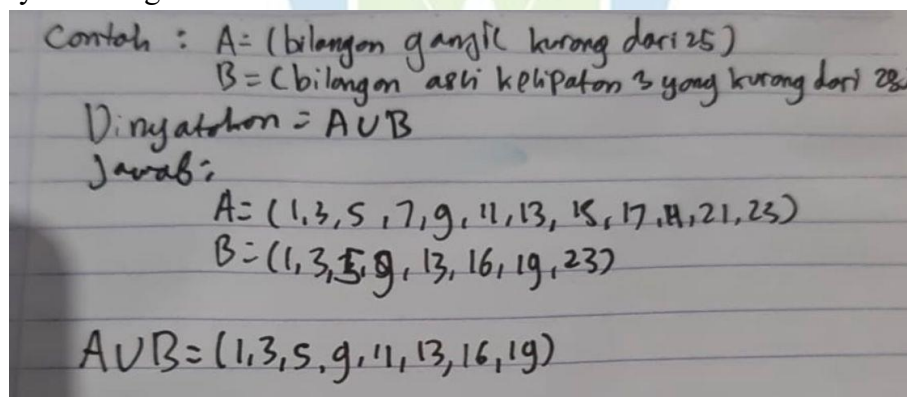 Contoh : A = (bilangan ganjil kurang dari 25)
B = (bilangan asli kelipatan 3 yang kurang dari 28
Dinyatakan = A ∪ B
Jawab :
A = (1, 3, 5, 7, 9, 11, 13, 15, 17, 21, 23)
B = (1, 3, 5, 9, 13, 16, 19, 23)
A ∪ B = (1, 3, 5, 9, 11, 13, 16, 19)